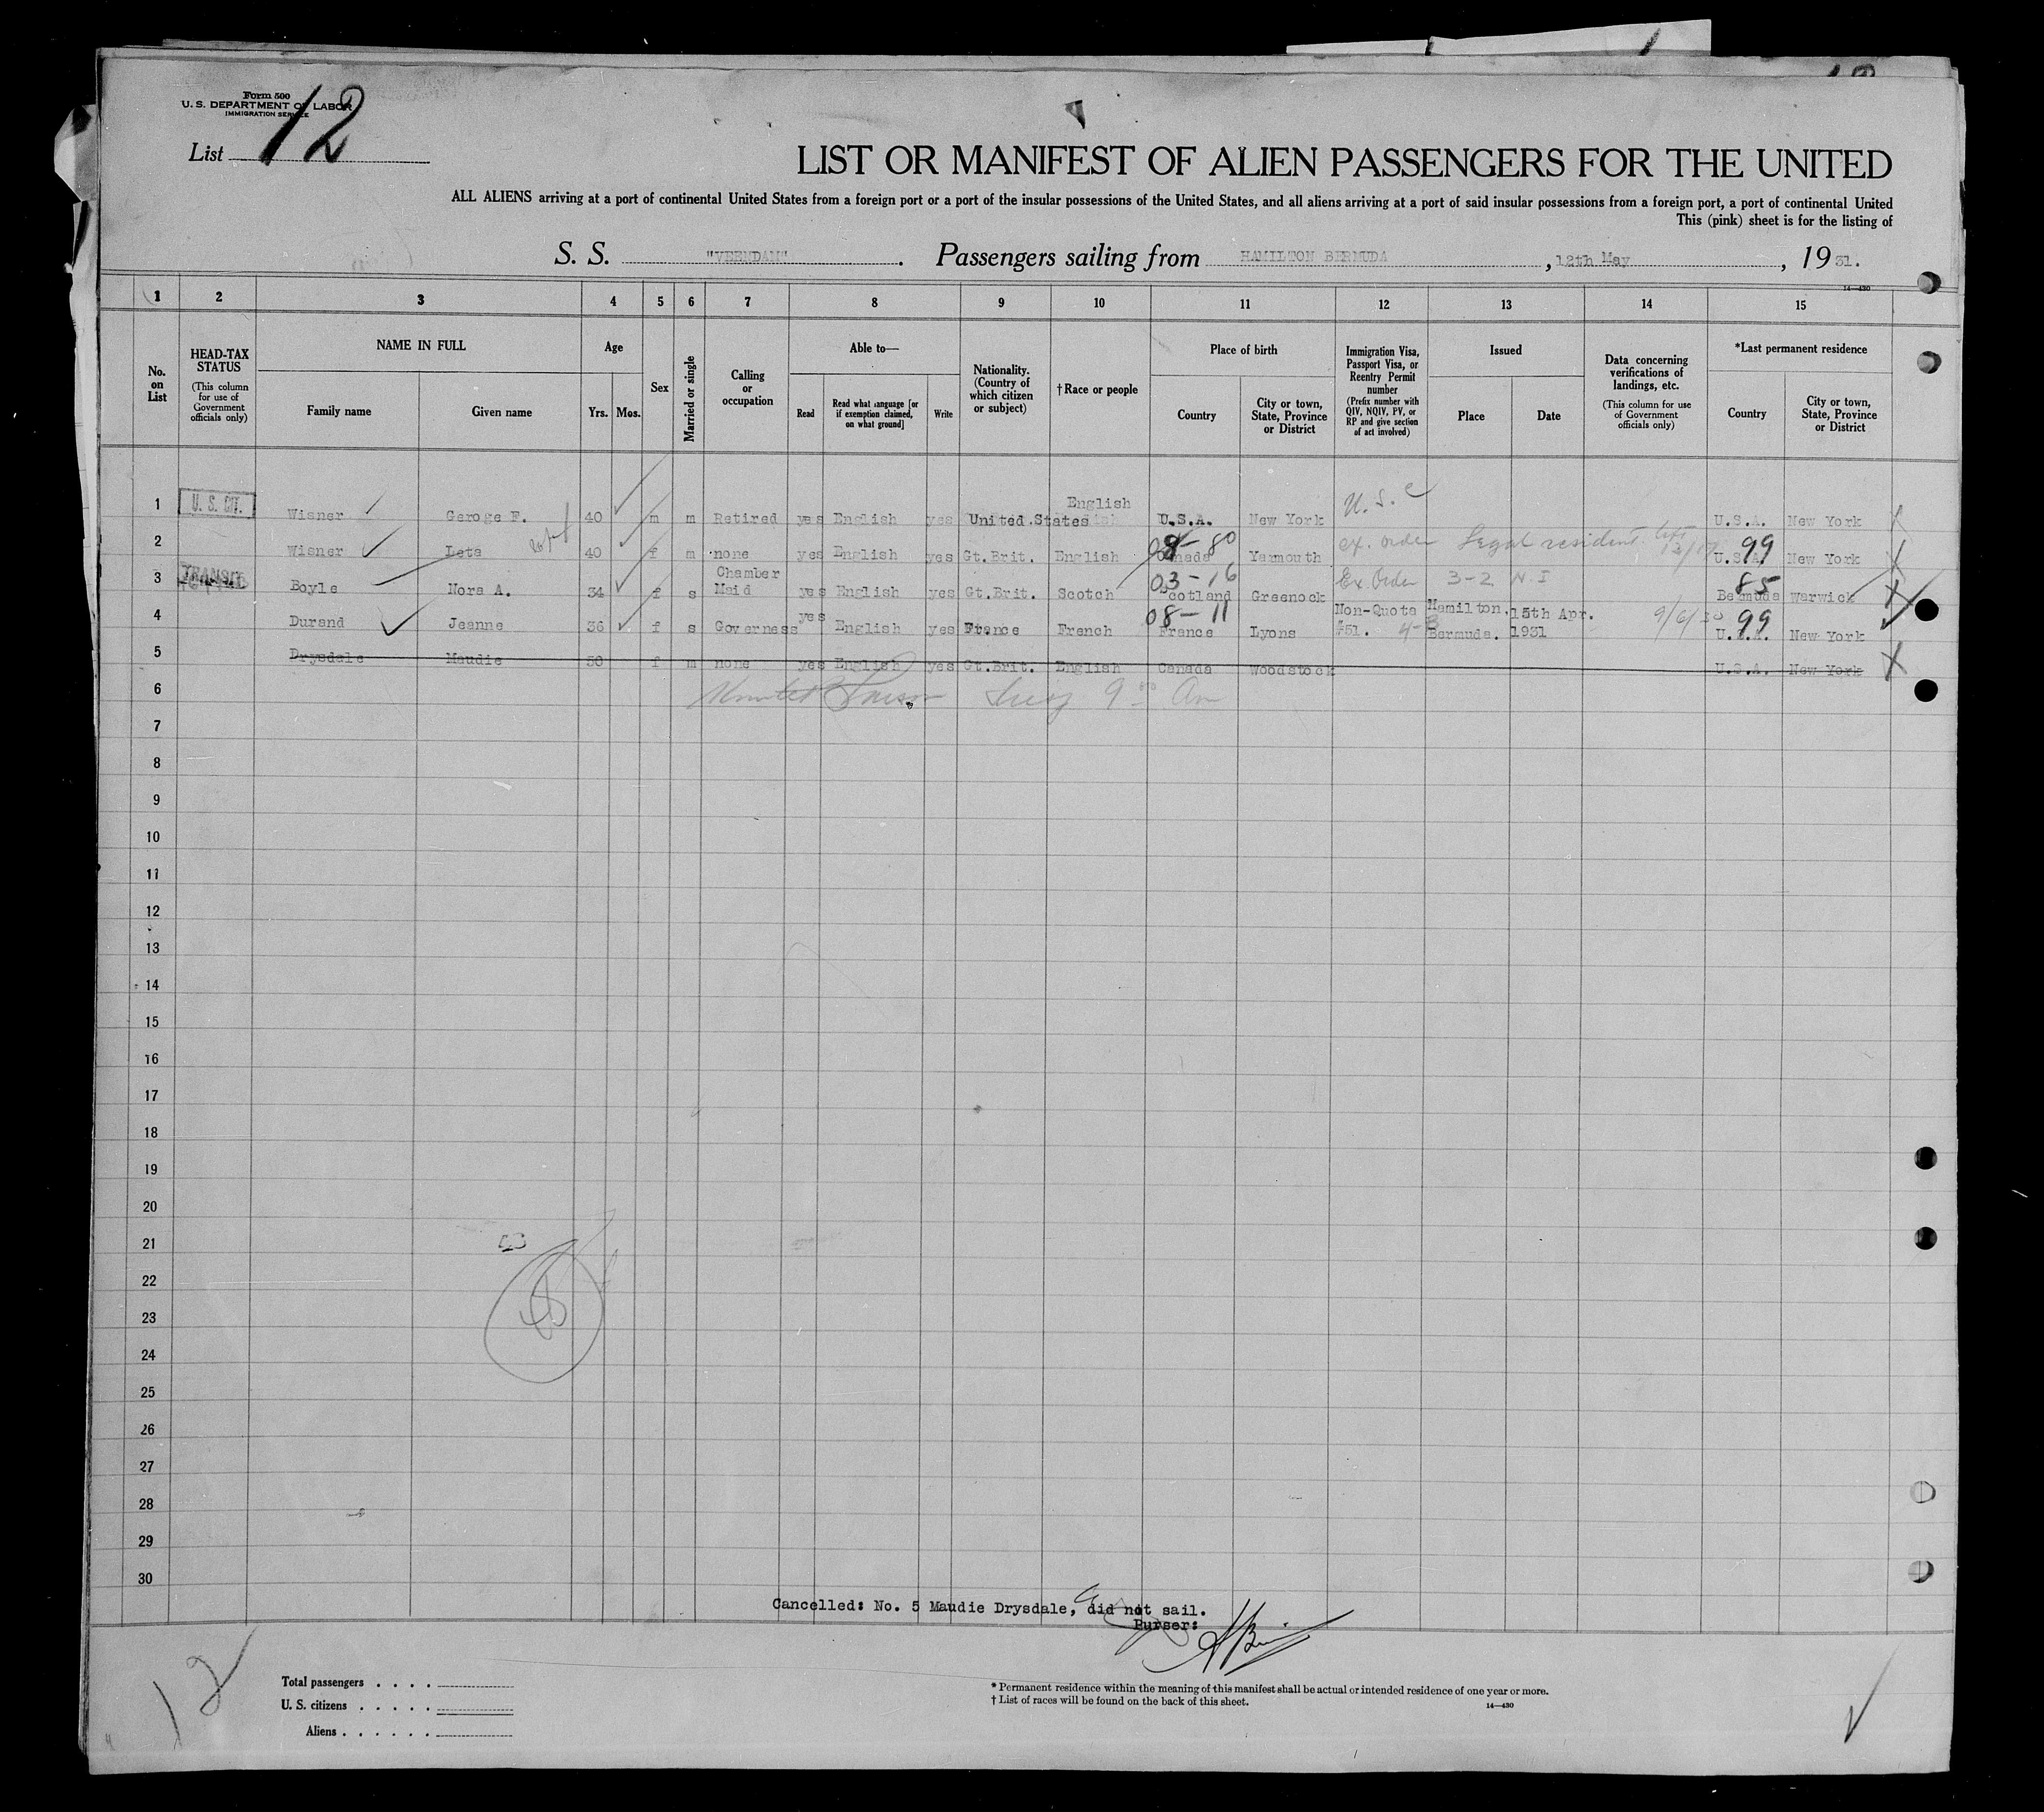 Form 500
U. S. DEPARTMENT OF LABOR
IMMIGRATION SERVICE
List 12
LIST OR MANIFEST OF ALIEN PASSENGERS FOR THE UNITED
ALL ALIENS arriving at a port of continental United States from a foreign port or a port of the insular possessions of the United States, and all aliens arriving at a port of said insular possessions from a foreign port, a port of continental United
This (pink) sheet is for the listing of
S. S. "VEENDAM". Passengers sailing from HAMILTON BERMUDA, 12th May, 1931.
14—430
1 2 3 4 5 6 7 8 9 10 11 12 13 14 15
No. on List
HEAD-TAX STATUS (This column for use of Government officials only)
NAME IN FULL Family name Given name
Age Yrs. Mos.
Sex
Married or single
Calling or occupation
Able to— Read Read what language [or if exemption claimed, on what ground] Write
Nationality. (Country of which citizen or subject)
†Race or people
Place of birth Country City or town, State, Province or District
Immigration Visa, Passport Visa, or Reentry Permit number (Prefix number with QIV, NQIV, PV, or RP and give section of act involved)
Issued Place Date
Data concerning verifications of landings, etc. (This column for use of Government officials only)
*Last permanent residence Country City or town, State, Province or District
1 U. S. CIT. Wisner Geroge F. 40 m m Retired yes English yes United States English U.S.A. New York U.S.C U.S.A. New York
2 Wisner Leta 40 f m none yes English yes Gt.Brit. English Canada 8-80 Yarmouth ex. order Legal resident U.S.A. 99 New York
3 TRANSIT Boyle Nora A. 34 f s Chamber Maid yes English yes Gt.Brit. Scotch Scotland 03-16 Greenock Ex. Order 3-2 N.I Bermuda 85 Warwick
4 Durand Jeanne 36 f s Governess yes English yes France French France 08-11 Lyons Non-Quota #51. 4-B Hamilton, Bermuda. 15th Apr. 1931 9/6/30 U.S.A. 99 New York
5 Drysdale Maudie 50 f m none yes English yes Gt.Brit. English Canada Woodstock U.S.A. New York
6
7
8
9
10
11
12
13
14
15
16
17
18
19
20
21
22
23
24
25
26
27
28
29
30
Cancelled: No. 5 Maudie Drysdale, did not sail.
Purser:
12
Total passengers . . . .
U. S. citizens . . . . .
Aliens . . . . . .
* Permanent residence within the meaning of this manifest shall be actual or intended residence of one year or more.
† List of races will be found on the back of this sheet.
14—430